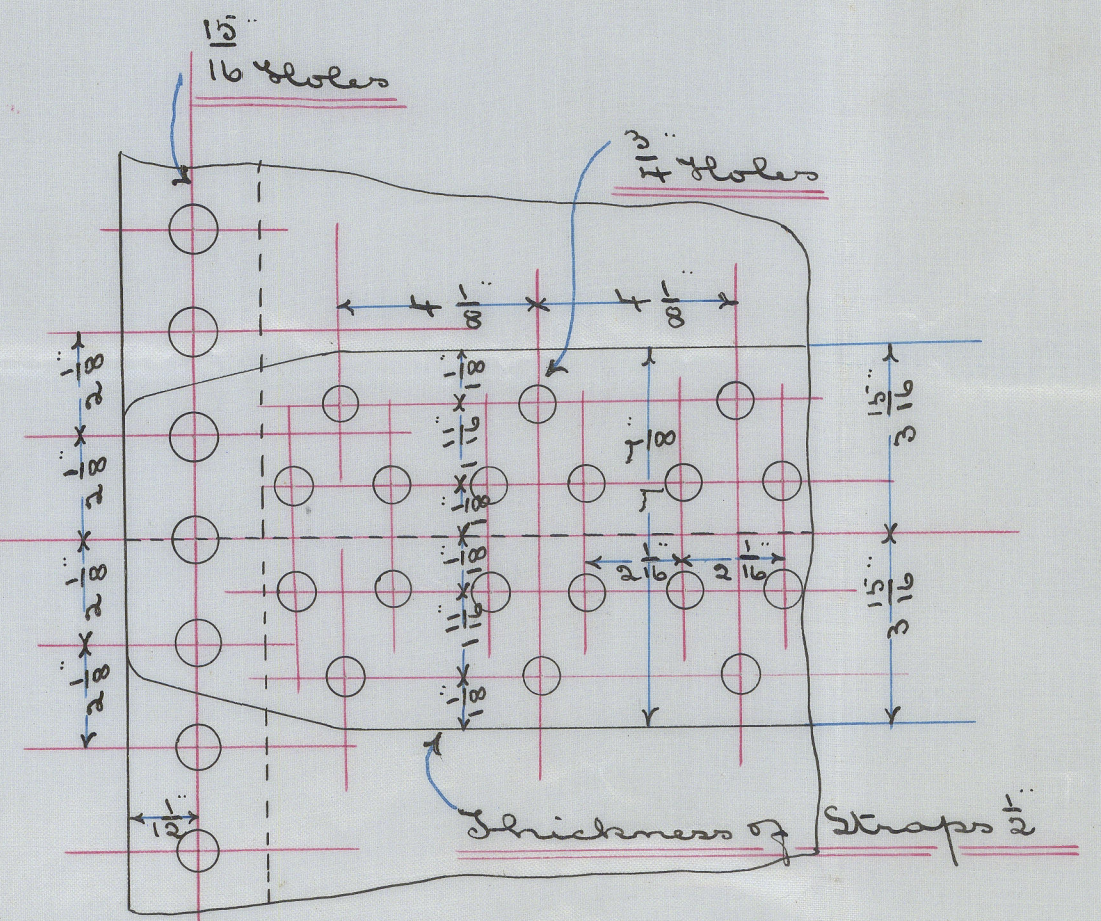 15/16" Holes
3/4" Holes
4 1/8" 4 1/8"
2 1/8"
2 1/8"
2 1/8"
2 1/8"
1 1/8"
1 11/16"
1 1/8"
1 1/8"
1 11/16"
1 1/8"
7 7/8"
3 15/16"
3 15/16"
2 1/16" 2 1/16"
1 1/2"
Thickness of Straps 1/2"